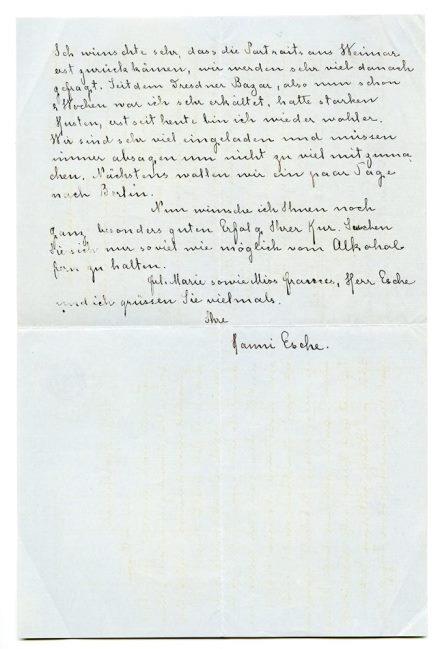 Ich wünschte sehr, dass die Portraits aus Weimar
erst zurückkämen, wir werden sehr viel danach
gefragt. Seit dem Dresdner Bazar, also nun schon
Wochen war ich sehr erkältet, hatte starken
Husten, erst seit heute bin ich wieder wohler.
Wir sind sehr viel eingeladen und müssen
immer absagen um nicht zu viel mitzuma
chen. Nächstens wollen wir ein paar Tage
nach Berlin.
Nun wünsche ich Ihnen noch
ganz besonders guten Erfolg Ihrer Kur. Suchen
Sie sich nur soviel wie möglich vom Alkohol
fern zu halten.
Marie sowie Miss Herr Esche
und ich grüssen Sie vielmals.
Ihre
Hanni Esche.